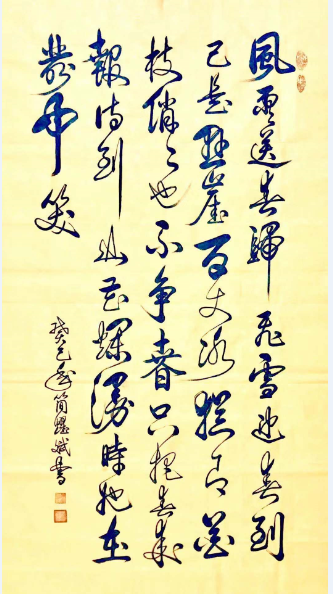 風雨送春歸 飛雪迎春到
已是懸崖百丈冰 猶有花
枝俏々也不争春只把春来
報待到山花爛漫時她在
叢中笑
癸巳年簡斌書